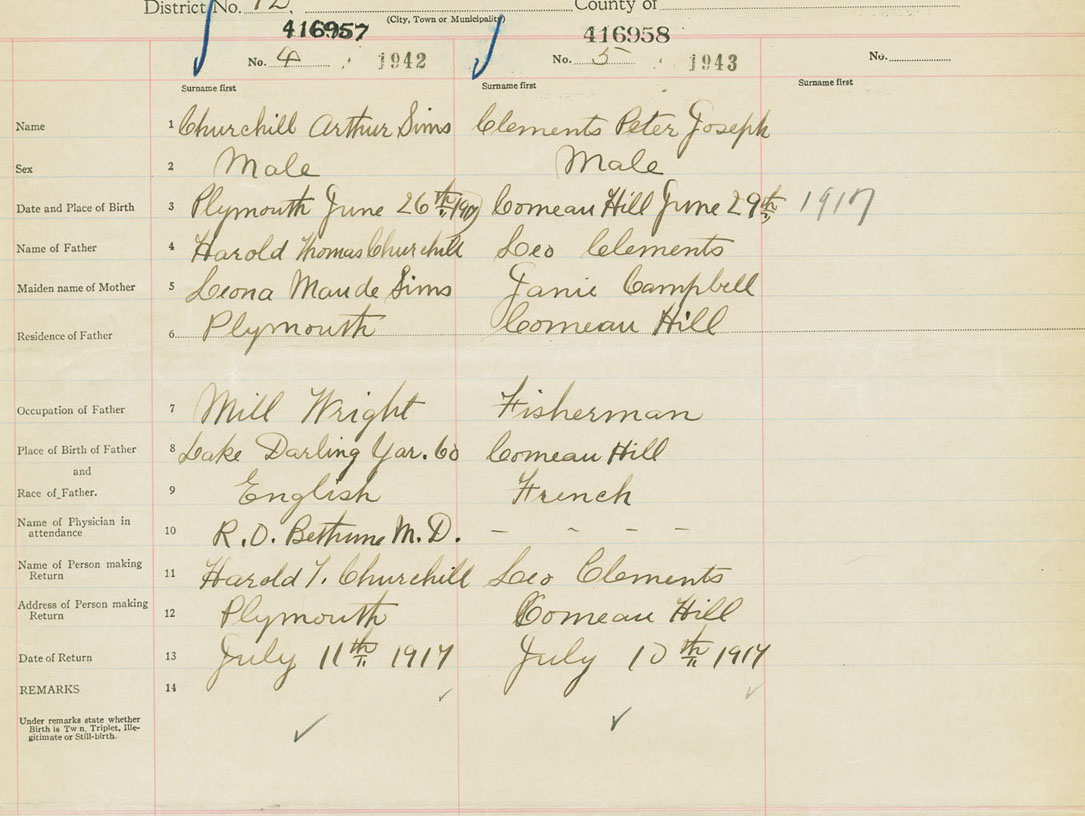 District No. 12. County of
(City, Town or Municipality)
416957 416958
No. 4 1942 No. 5 1943 No.
Surname first Surname first Surname first
Name 1 Churchill Arthur Sims Clements Peter Joseph
Sex 2 Male Male
Date and Place of Birth 3 Plymouth June 26th 1917 Comeau Hill June 29th 1917
Name of Father 4 Harold Thomas Churchill Leo Clements
Maiden name of Mother 5 Leona Maude Sims Janie Campbell
Residence of Father 6 Plymouth Comeau Hill
Occupation of Father 7 Mill Wright Fisherman
Place of Birth of Father 8 Lake Darling Yar. Co Comeau Hill
and
Race of Father. 9 English French
Name of Physician in
attendance 10 R. D. Bethune M. D. - - - -
Name of Person making
Return 11 Harold T. Churchill Leo Clements
Address of Person making
Return 12 Plymouth Comeau Hill
Date of Return 13 July 11th 1917 July 10th 1917
REMARKS 14
Under remarks state whether
Birth is Twn, Triplet, Ille-
gitimate or Still-birth.